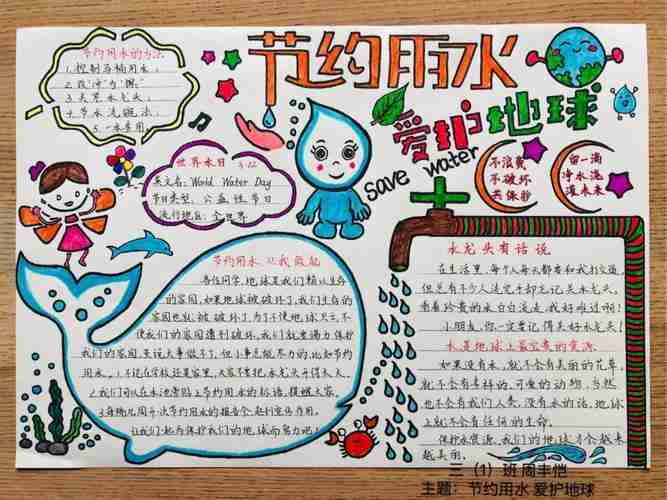 节约用水
爱护地球
save water
节约用水的方法
1.控制马桶用水;
3.关紧水龙头;
4.节水洗碗法;
5.一水多用。
世界水日 3.22
英文名: World Water Day
节日类型: 公益性节日
流行地区: 全世界
不浪费
不破坏
共保护
留一滴
净水流
滋未来
节约用水 从我做起
各位同学,地球是我们赖以生存
的家园,如果地球被破坏了,我们生存的
家园也就被破坏了,为了不使地球哭泣,不
使我们的家园遭到破坏,我们就要竭力保护
我们的家园,
用水。1.不论在学校还是家里,大家需要把水龙头开得
2.我们可以在水池旁贴上节约用水的标语,提醒大家。
3.每班几周开一次节约用水的报告会,起到宣传作用。
让我们一起为保护我们的地球而努力吧!
水龙头有话说
在生活里,每个人每天都要和我打交道,
但总有不少人洗完手却忘记关水龙头,
看着珍贵的水白白流走,我好难过啊!
小朋友,你一定要记得关好水龙头!
水是地球上最宝贵的资源
如果没有水,就不会有美丽的花草,
就不会有各样的、可爱的动物,当然
也不会有我们人类。没有水的话,地球
上就不会有任何的生命。
保护水资源,我们的地球才会越来
越美丽。
三(1)班 周丰恺
主题:节约用水 爱护地球